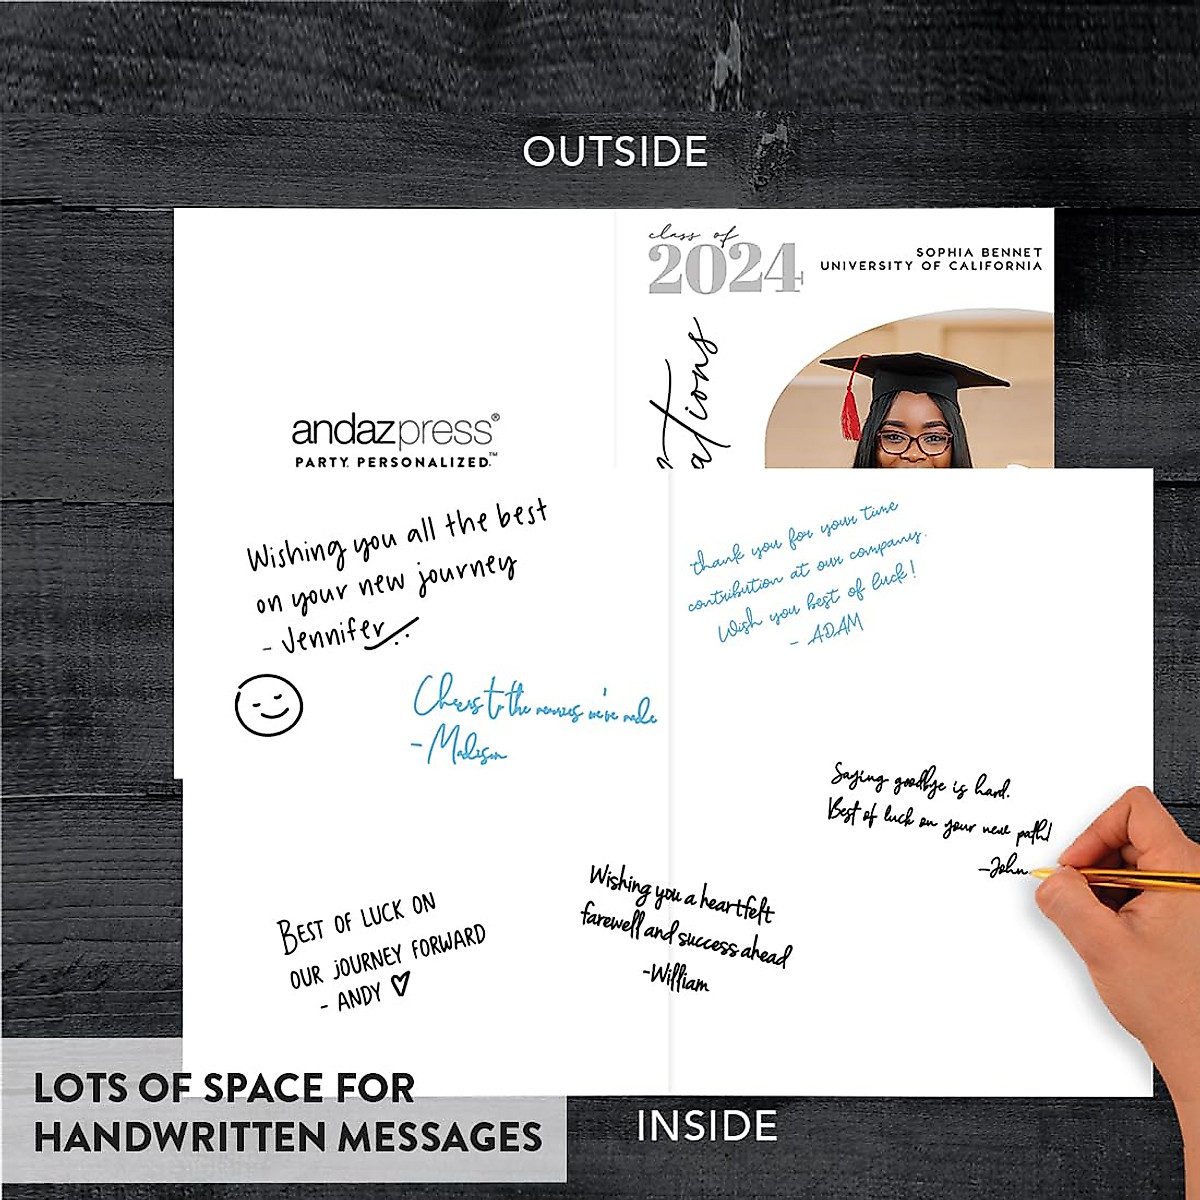 OUTSIDE
class of
2024
SOPHIA BENNET
UNIVERSITY OF CALIFORNIA
ations
andazpress®
PARTY. PERSONALIZED.™
Wishing you all the best
on your new journey
- Jennifer
thank you for your time
contribution at our company.
Wish you best of luck!
- ADAM
Cheers to the memories we've made
-Madison
Saying goodbye is hard.
Best of luck on your new path!
-John
Wishing you a heartfelt
farewell and success ahead
-William
BEST OF LUCK ON
OUR JOURNEY FORWARD
- ANDY
LOTS OF SPACE FOR
HANDWRITTEN MESSAGES
INSIDE